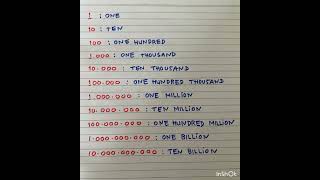 1 : ONE
10 : TEN
100 : ONE HUNDRED
1.000 : ONE THOUSAND
10.000 : TEN THOUSAND
100.000 : ONE HUNDRED THOUSAND
1.000.000 : ONE MILLION
10.000.000 : TEN MILLION
100.000.000 : ONE HUNDRED MILLION
1.000.000.000 : ONE BILLION
10.000.000.000 : TEN BILLION
InShOt